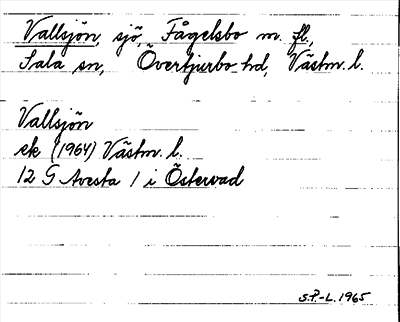 Vallsjön, sjö, Fågelsbo m. fl.,
Sala sn, Övertjurbo hd, Västm. l.
Vallsjön
ek (1964) Västm. l.
12 G Avesta 1 i Östervad
S.P.-L. 1965